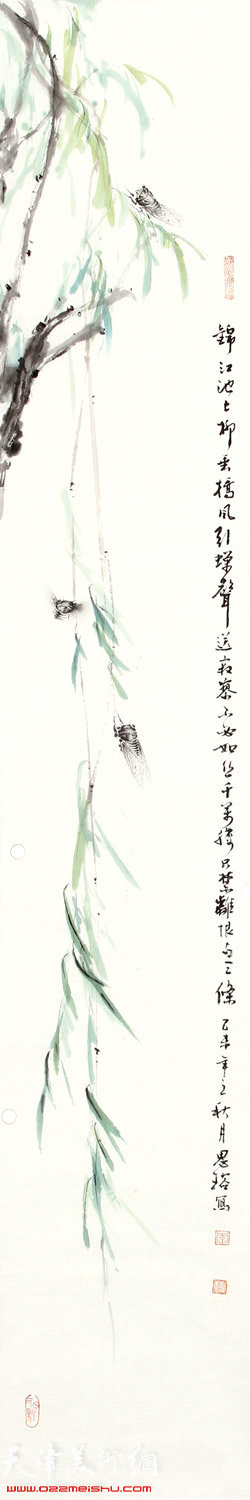 錦江池上柳垂橋風引蟬聲送寂寥不必如絲千萬縷只禁離恨兩三條 乙未年之秋月思鎔寫
天津美術網
www.022meishu.com